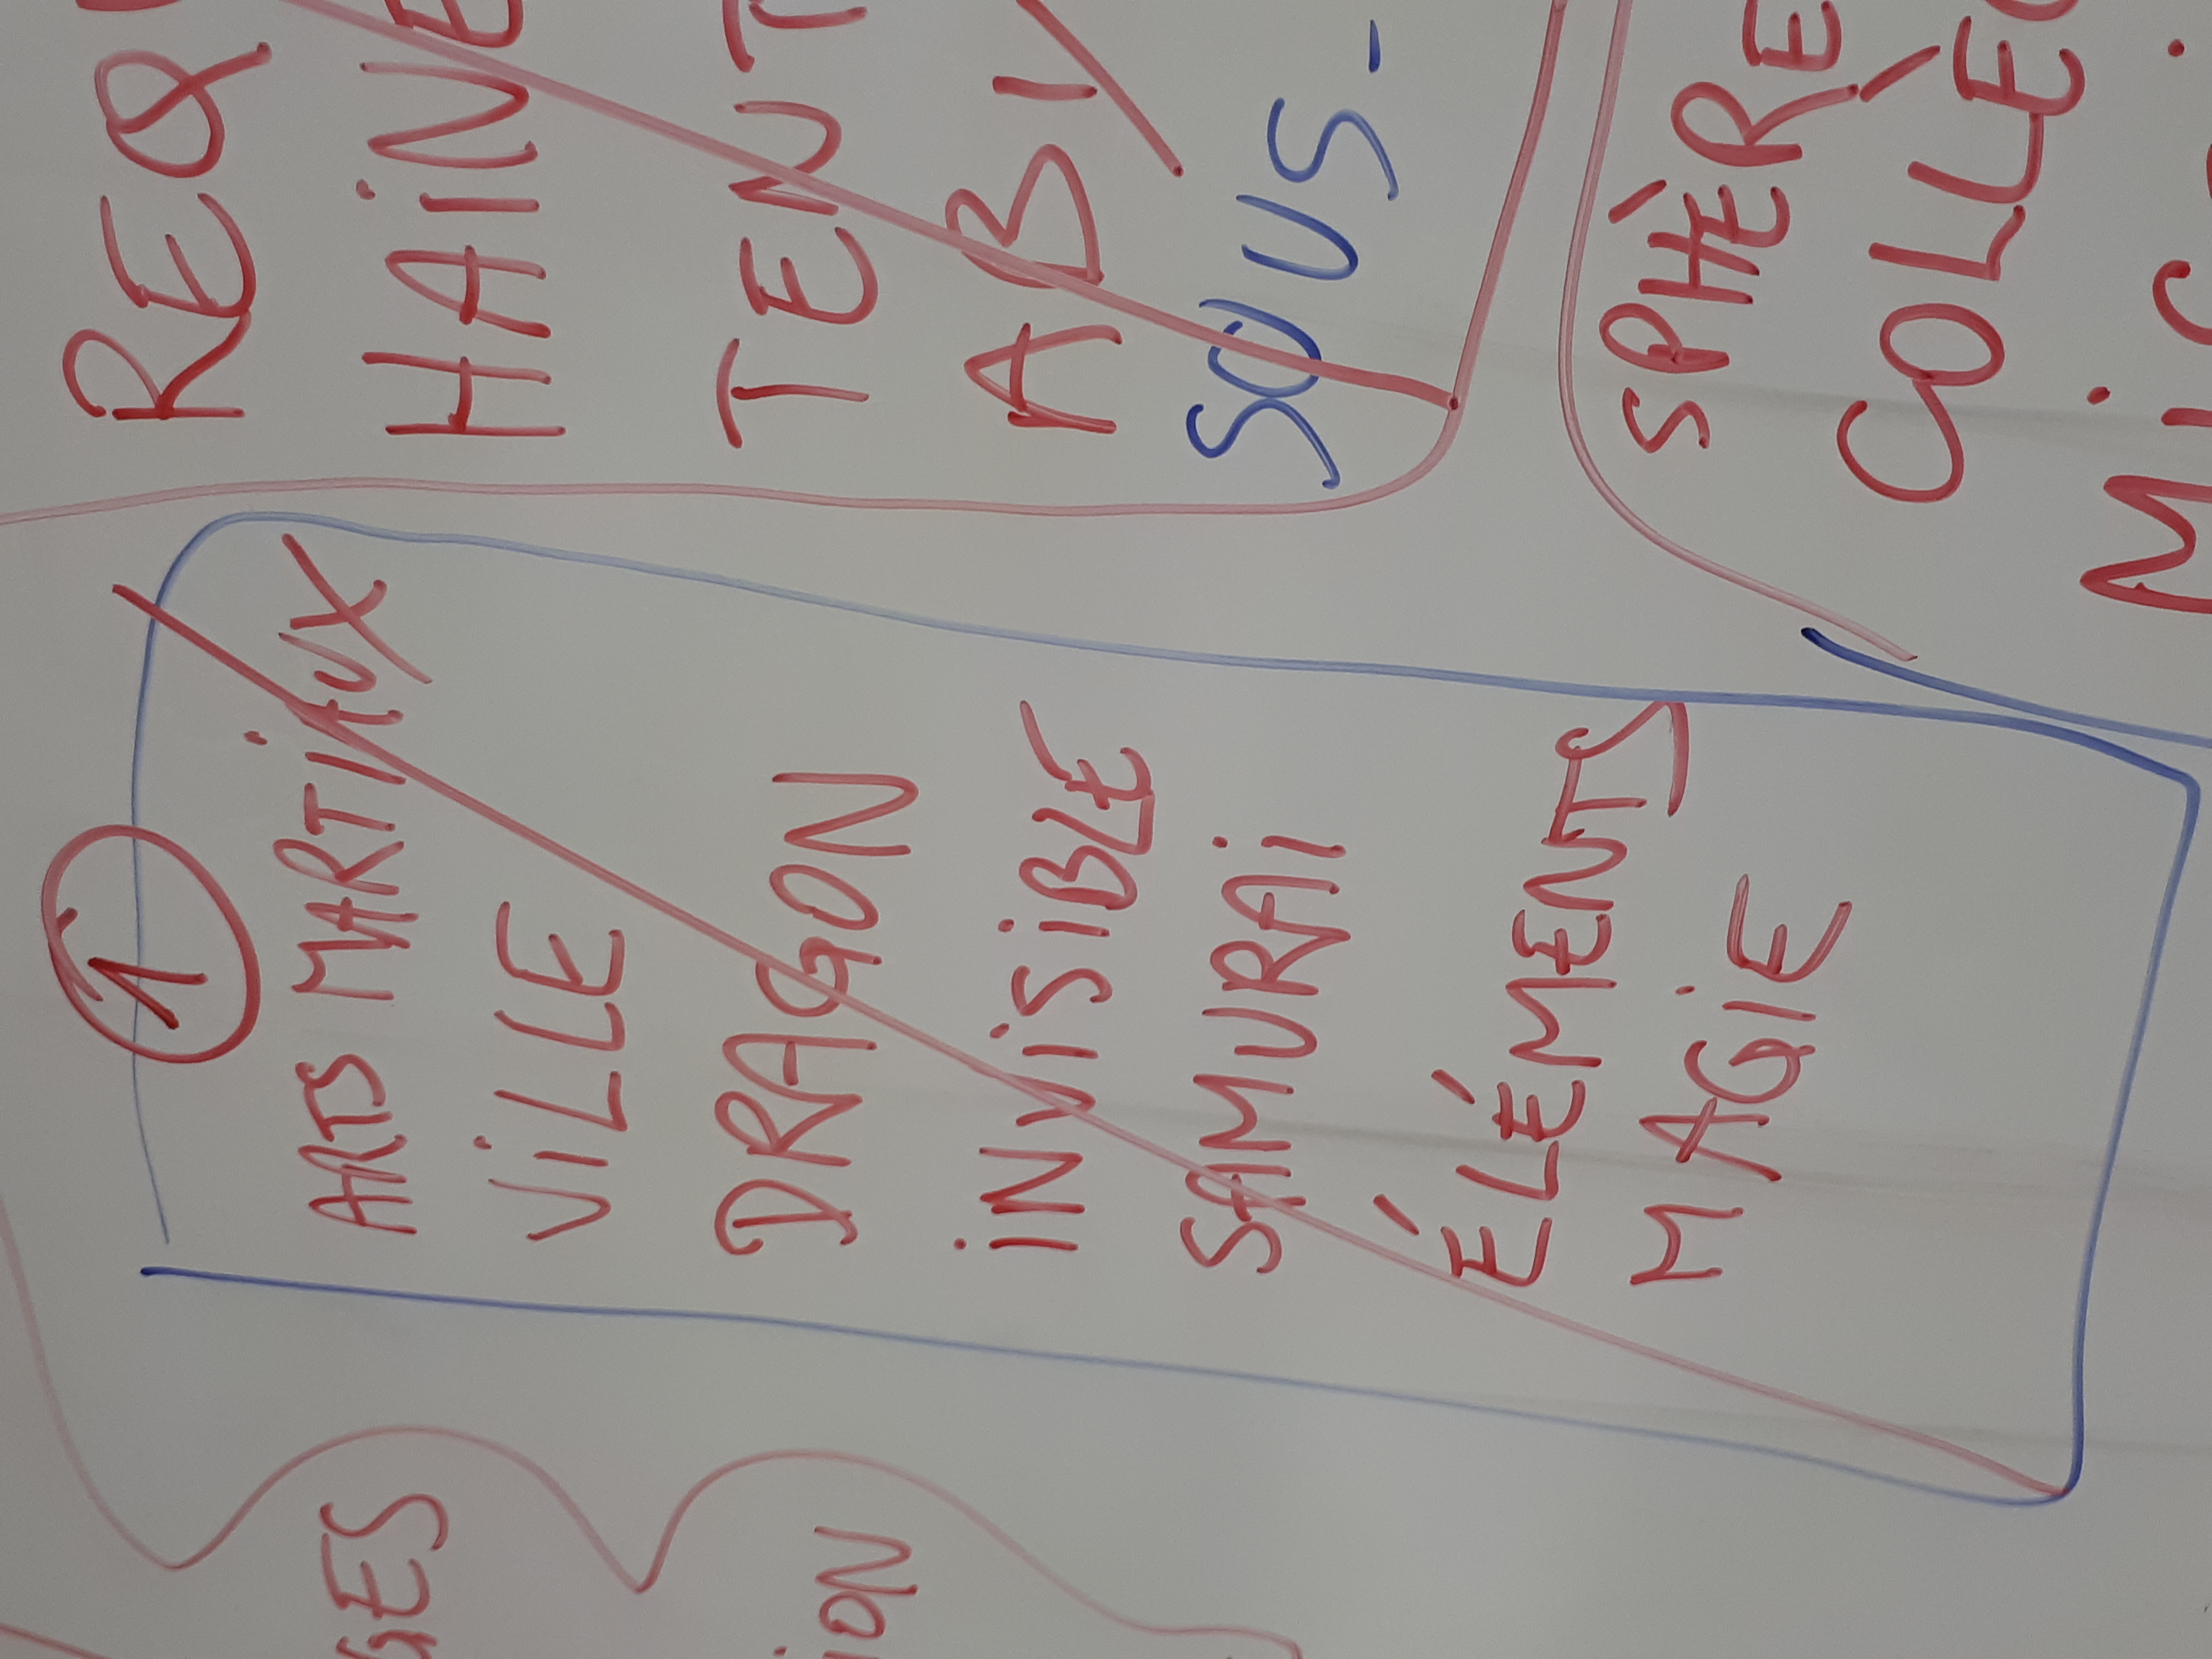 1
ARTS MARTiAUX
ViLLE
DRAGON
iNViSiBLE
SAMURAi
ÉLÉMENTS
MAGiE
GES
iON
REQ
HAiNE
TENT
ABY
SOUS-
SPHÈRE
COLLÈC